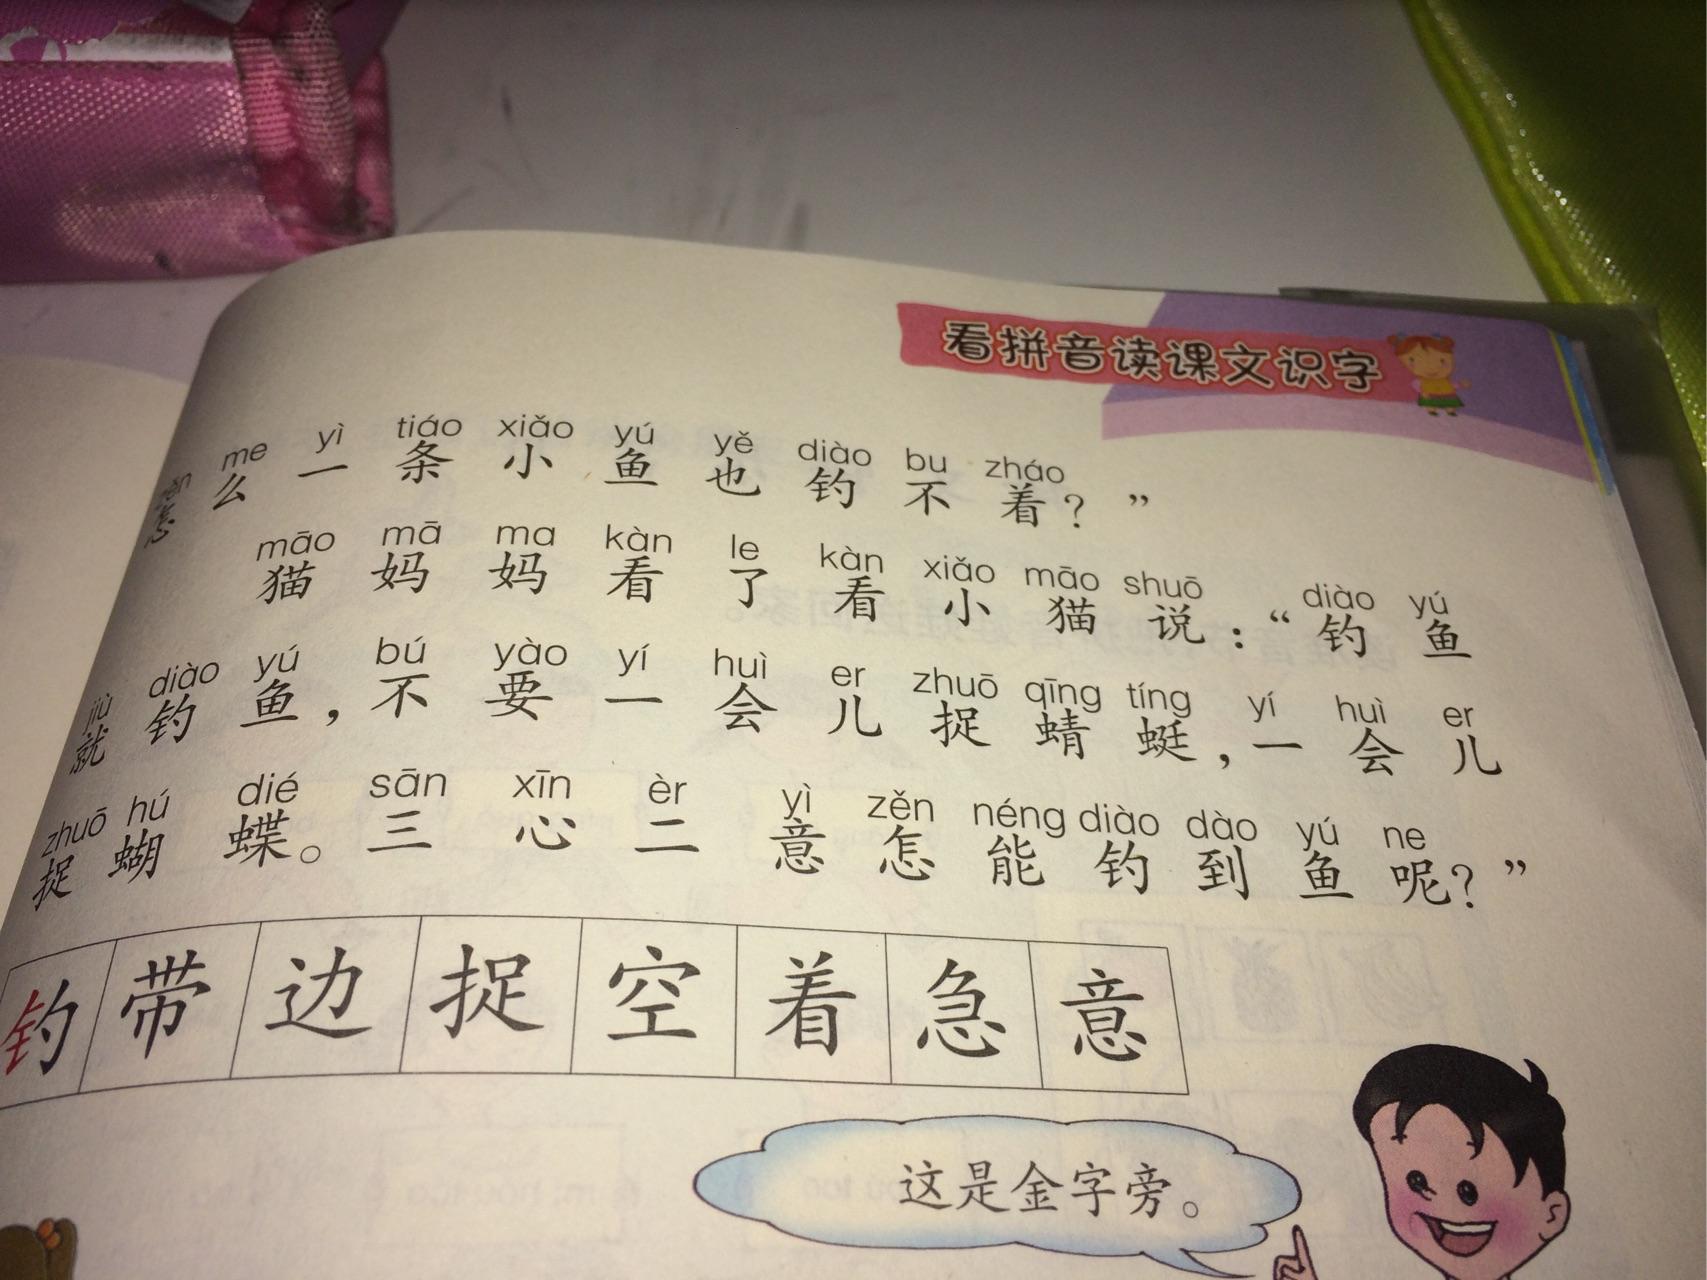 看拼音读课文识字
zěn me yì tiáo xiǎo yú yě diào bu zháo
怎么一条小鱼也钓不着？”
māo mā ma kàn le kàn xiǎo māo shuō diào yú
猫妈妈看了看小猫说：“钓鱼
jiù diào yú bú yào yí huì er zhuō qīng tíng yí huì er
就钓鱼，不要一会儿捉蜻蜓，一会儿
zhuō hú dié sān xīn èr yì zěn néng diào dào yú ne
捉蝴蝶。三心二意怎能钓到鱼呢？”
钓 带 边 捉 空 着 急 意
这是金字旁。